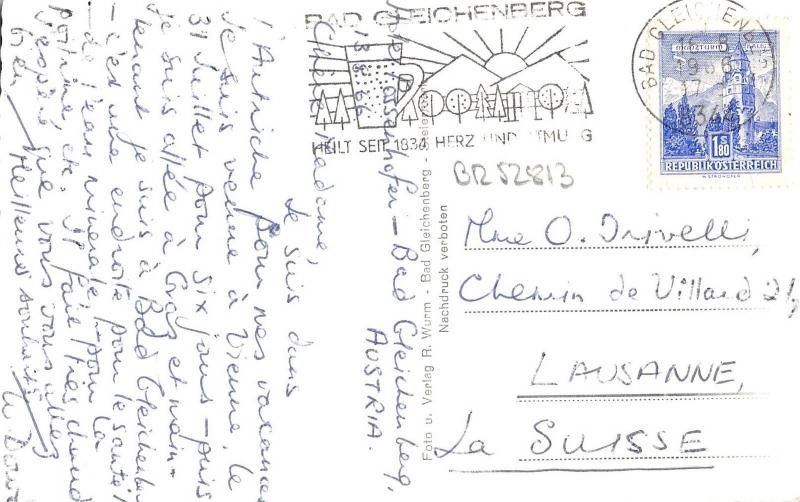 BAD GLEICHENBERG
HEILT SEIT 1834 HERZ UND ATMUNG
BAD GLEICHENB
MÜNZTURM HALL
1S80
REPUBLIK ÖSTERREICH
BR 52813
Mme O. Drivelli,
Chemin de Villard 21,
LAUSANNE,
La SUISSE
Foto u. Verlag R. Wurm - Bad Gleichenberg -
Nachdruck verboten
Bad Gleichenberg,
AUSTRIA.
13.8.66
Chère Madame,
Je suis dans
l'Autriche pour mes vacances
Je suis venue à Vienne, le
31 Juillet pour six jours - puis
je suis allée à Graz et main-
tenant je suis à Bad Gleichenber
- c'est une endroite pour le santé,
de l'eau minerale - pour la
poitrine, etc. Il fait très chaud
J'espère que vous vous allez
bien. Meilleurs souhaits